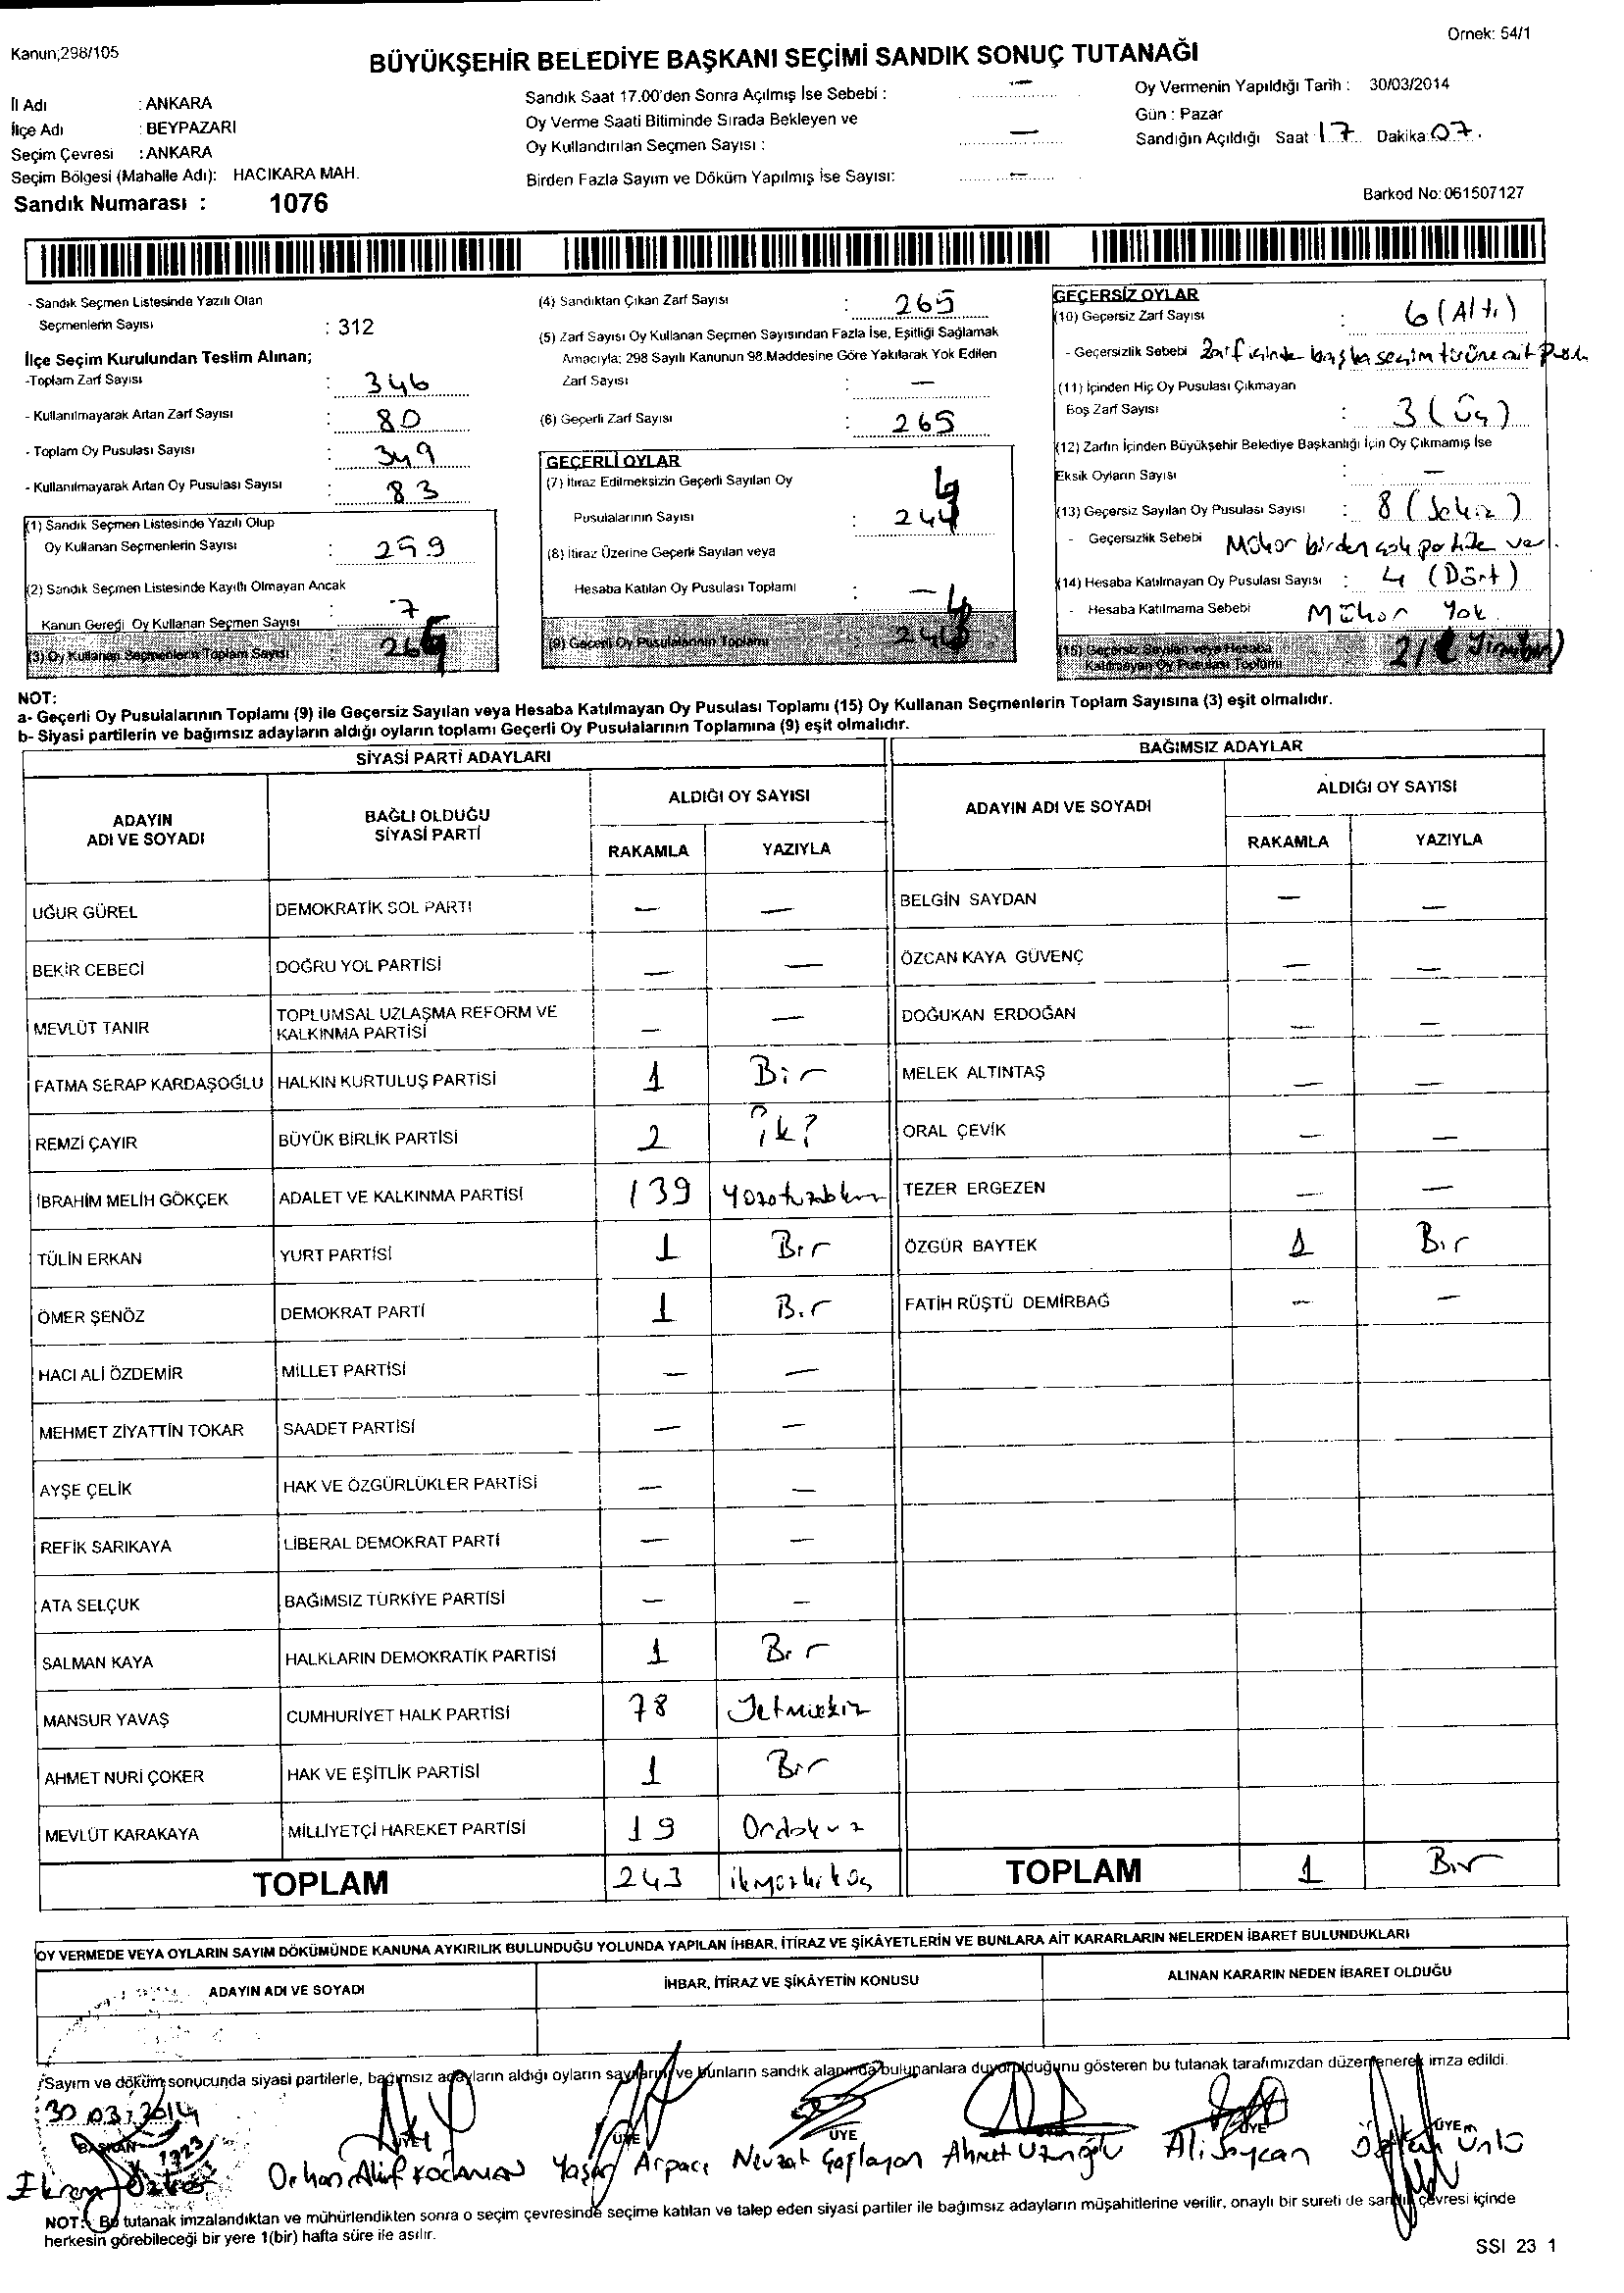 Kanun;298/105
Ornek: 54/1
BÜYÜKŞEHİR BELEDİYE BAŞKANI SEÇİMİ SANDIK SONUÇ TUTANAĞI
İl Adı : ANKARA
İlçe Adı : BEYPAZARI
Seçim Çevresi : ANKARA
Seçim Bölgesi (Mahalle Adı): HACIKARA MAH.
Sandık Numarası : 1076
Sandık Saat 17.00'den Sonra Açılmış İse Sebebi : —
Oy Verme Saati Bitiminde Sırada Bekleyen ve
Oy Kullandırılan Seçmen Sayısı : —
Birden Fazla Sayım ve Döküm Yapılmış İse Sayısı: —
Oy Vermenin Yapıldığı Tarih : 30/03/2014
Gün : Pazar
Sandığın Açıldığı Saat 17 Dakika 07.
Barkod No: 061507127
- Sandık Seçmen Listesinde Yazılı Olan
Seçmenlerin Sayısı : 312
İlçe Seçim Kurulundan Teslim Alınan;
-Toplam Zarf Sayısı : 346
- Kullanılmayarak Artan Zarf Sayısı : 80
- Toplam Oy Pusulası Sayısı : 349
- Kullanılmayarak Artan Oy Pusulası Sayısı : 83
(1) Sandık Seçmen Listesinde Yazılı Olup
Oy Kullanan Seçmenlerin Sayısı : 259
(2) Sandık Seçmen Listesinde Kayıtlı Olmayan Ancak
Kanun Gereği Oy Kullanan Seçmen Sayısı : 7
(3) Oy Kullanan Seçmenlerin Toplam Sayısı
(4) Sandıktan Çıkan Zarf Sayısı : 265
(5) Zarf Sayısı Oy Kullanan Seçmen Sayısından Fazla İse, Eşitliği Sağlamak
Amacıyla; 298 Sayılı Kanunun 98.Maddesine Göre Yakılarak Yok Edilen
Zarf Sayısı : —
(6) Geçerli Zarf Sayısı : 265
GEÇERLİ OYLAR
(7) İtiraz Edilmeksizin Geçerli Sayılan Oy
Pusulalarının Sayısı : 244
(8) İtiraz Üzerine Geçerli Sayılan veya
Hesaba Katılan Oy Pusulası Toplamı : —
(9) Geçerli Oy Pusulalarının Toplamı 244
GEÇERSİZ OYLAR
(10) Geçersiz Zarf Sayısı : 6 (Altı)
- Geçersizlik Sebebi Zarf içinde başka seçim türüne ait
(11) İçinden Hiç Oy Pusulası Çıkmayan
Boş Zarf Sayısı : 3 (Üç)
(12) Zarfın İçinden Büyükşehir Belediye Başkanlığı İçin Oy Çıkmamış İse
Eksik Oyların Sayısı : —
(13) Geçersiz Sayılan Oy Pusulası Sayısı : 8 (Sekiz)
- Geçersizlik Sebebi Mühür birden çok partide var.
(14) Hesaba Katılmayan Oy Pusulası Sayısı : 4 (Dört)
- Hesaba Katılmama Sebebi Mühür Yok
(15) Geçersiz Sayılan veya Hesaba
Katılmayan Oy Pusulası Toplamı 21
NOT:
a- Geçerli Oy Pusulalarının Toplamı (9) ile Geçersiz Sayılan veya Hesaba Katılmayan Oy Pusulası Toplamı (15) Oy Kullanan Seçmenlerin Toplam Sayısına (3) eşit olmalıdır.
b- Siyasi partilerin ve bağımsız adayların aldığı oyların toplamı Geçerli Oy Pusulalarının Toplamına (9) eşit olmalıdır.
SİYASİ PARTİ ADAYLARI BAĞIMSIZ ADAYLAR
ADAYIN ADI VE SOYADI BAĞLI OLDUĞU SİYASİ PARTİ ALDIĞI OY SAYISI ADAYIN ADI VE SOYADI ALDIĞI OY SAYISI
RAKAMLA YAZIYLA RAKAMLA YAZIYLA
UĞUR GÜREL DEMOKRATİK SOL PARTİ — — BELGİN SAYDAN — —
BEKİR CEBECİ DOĞRU YOL PARTİSİ — — ÖZCAN KAYA GÜVENÇ — —
MEVLÜT TANIR TOPLUMSAL UZLAŞMA REFORM VE KALKINMA PARTİSİ — — DOĞUKAN ERDOĞAN — —
FATMA SERAP KARDAŞOĞLU HALKIN KURTULUŞ PARTİSİ 1 Bir MELEK ALTINTAŞ — —
REMZİ ÇAYIR BÜYÜK BİRLİK PARTİSİ 2 İki ORAL ÇEVİK — —
İBRAHİM MELİH GÖKÇEK ADALET VE KALKINMA PARTİSİ 139 TEZER ERGEZEN — —
TÜLİN ERKAN YURT PARTİSİ 1 Bir ÖZGÜR BAYTEK 1 Bir
ÖMER ŞENÖZ DEMOKRAT PARTİ 1 Bir FATİH RÜŞTÜ DEMİRBAĞ — —
HACI ALİ ÖZDEMİR MİLLET PARTİSİ — —
MEHMET ZİYATTİN TOKAR SAADET PARTİSİ — —
AYŞE ÇELİK HAK VE ÖZGÜRLÜKLER PARTİSİ — —
REFİK SARIKAYA LİBERAL DEMOKRAT PARTİ — —
ATA SELÇUK BAĞIMSIZ TÜRKİYE PARTİSİ — —
SALMAN KAYA HALKLARIN DEMOKRATİK PARTİSİ 1 Bir
MANSUR YAVAŞ CUMHURİYET HALK PARTİSİ 78
AHMET NURİ ÇOKER HAK VE EŞİTLİK PARTİSİ 1 Bir
MEVLÜT KARAKAYA MİLLİYETÇİ HAREKET PARTİSİ 19 Ondokuz
TOPLAM 243 TOPLAM 1 Bir
OY VERMEDE VEYA OYLARIN SAYIM DÖKÜMÜNDE KANUNA AYKIRILIK BULUNDUĞU YOLUNDA YAPILAN İHBAR, İTİRAZ VE ŞİKÂYETLERİN VE BUNLARA AİT KARARLARIN NELERDEN İBARET BULUNDUKLARI
ADAYIN ADI VE SOYADI İHBAR, İTİRAZ VE ŞİKÂYETİN KONUSU ALINAN KARARIN NEDEN İBARET OLDUĞU
Sayım ve döküm sonucunda siyasi partilerle, bağımsız adayların aldığı oyların sayılarını ve bunların sandık alanında bulunanlara duyurulduğunu gösteren bu tutanak tarafımızdan düzenlenerek imza edildi.
30.03.2014
BAŞKAN ÜYE ÜYE ÜYE ÜYE ÜYE
Orhan Akif KOCAMAN Yaşar Arpacı Nevzat Çaflayan Ahmet Uzunoğlu Ali Saycan Ünlü
NOT: Bu tutanak imzalandıktan ve mühürlendikten sonra o seçim çevresinde seçime katılan ve talep eden siyasi partiler ile bağımsız adayların müşahitlerine verilir, onaylı bir sureti de sandık çevresi içinde
herkesin görebileceği bir yere 1(bir) hafta süre ile asılır.
SSI 23 1